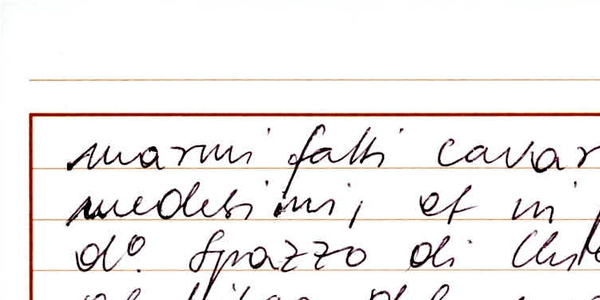 marmi fatti cavar
medesimi, et in
do. Spazzo di